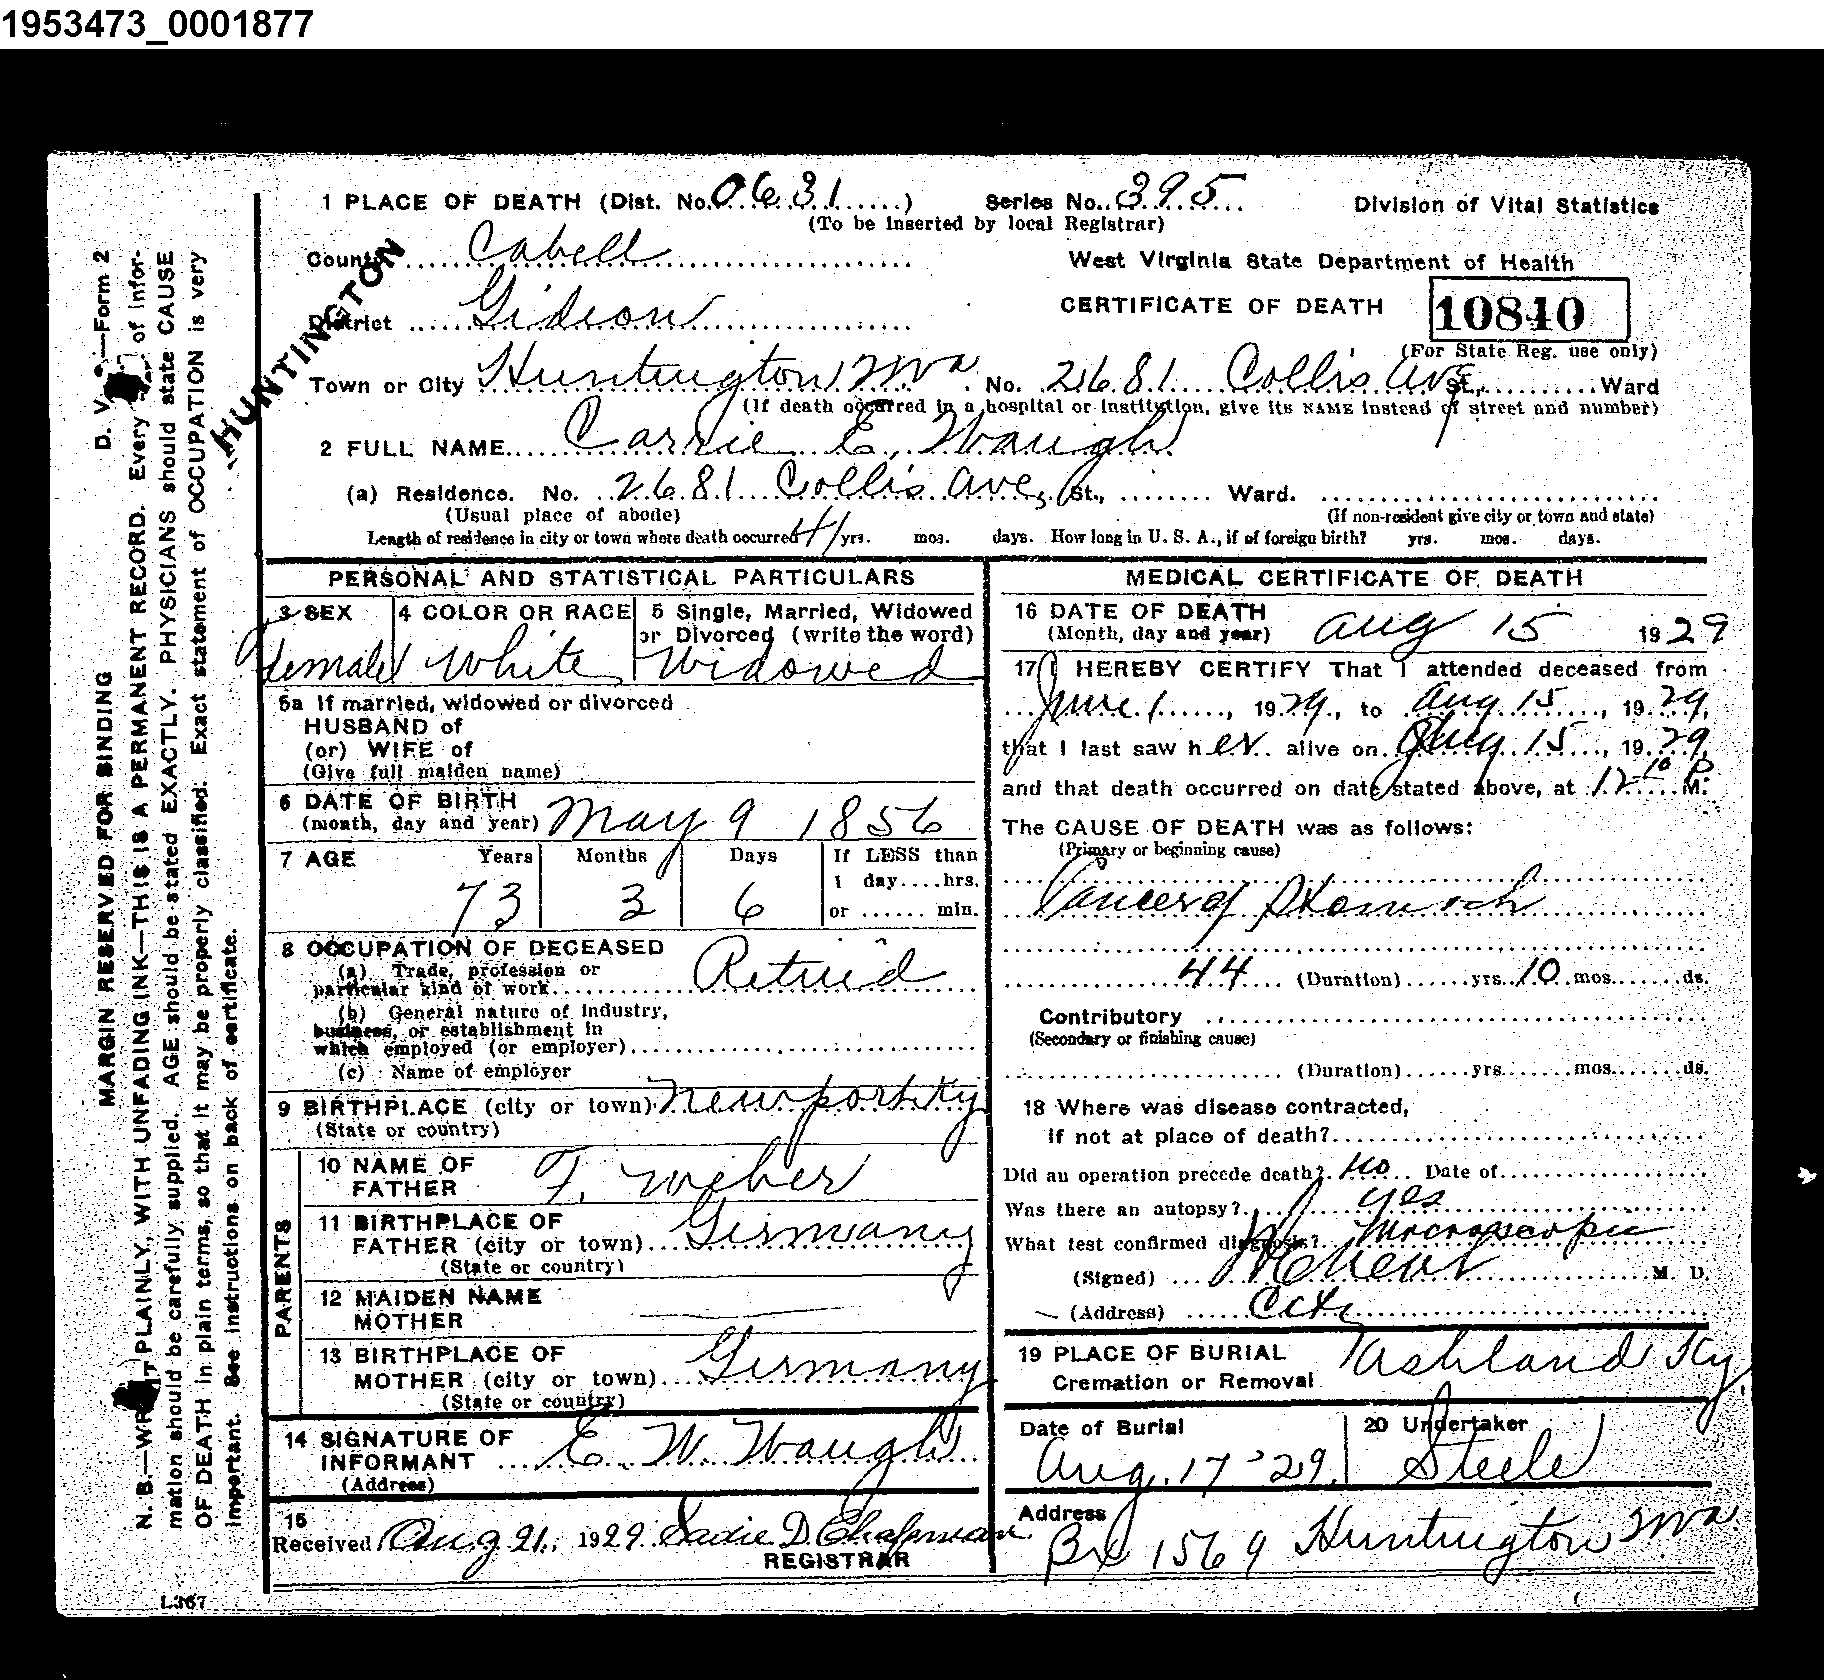 1953473_0001877
1 PLACE OF DEATH (Dist. No. 0631) Series No. 395 Division of Vital Statistics
(To be inserted by local Registrar)
County Cabell West Virginia State Department of Health
HUNTINGTON
District Gideon CERTIFICATE OF DEATH 10840
(For State Reg. use only)
Town or City Huntington W Va No. 2681 Collis Ave St., Ward
(If death occurred in a hospital or institution, give its NAME instead of street and number)
2 FULL NAME Carrie E. Waugh
(a) Residence. No. 2681 Collis Ave, St., Ward.
(Usual place of abode) (If non-resident give city or town and state)
Length of residence in city or town where death occurred yrs. mos. days. How long in U. S. A., if of foreign birth? yrs. mos. days.
PERSONAL AND STATISTICAL PARTICULARS
3 SEX 4 COLOR OR RACE 5 Single, Married, Widowed
or Divorced (write the word)
Female White Widowed
5a If married, widowed or divorced
HUSBAND of
(or) WIFE of
(Give full maiden name)
6 DATE OF BIRTH
(month, day and year) May 9 1856
7 AGE Years Months Days If LESS than
1 day....hrs.
73 3 6 or ...... min.
8 OCCUPATION OF DECEASED
(a) Trade, profession or
particular kind of work Retired
(b) General nature of industry,
business, or establishment in
which employed (or employer)
(c) Name of employer
9 BIRTHPLACE (city or town) Newport Ky
(State or country)
PARENTS
10 NAME OF
FATHER F. Weber
11 BIRTHPLACE OF
FATHER (city or town) Germany
(State or country)
12 MAIDEN NAME
MOTHER
13 BIRTHPLACE OF
MOTHER (city or town) Germany
(State or country)
14 SIGNATURE OF
INFORMANT E. W. Waugh
(Address)
15
Received Aug 21, 1929 Sadie D. Chapman
REGISTRAR
MEDICAL CERTIFICATE OF DEATH
16 DATE OF DEATH
(Month, day and year) Aug 15 1929
17 I HEREBY CERTIFY That I attended deceased from
June 1, 1929, to Aug 15, 1929,
that I last saw her alive on Aug 15, 1929,
and that death occurred on date stated above, at 12 10 P. M.
The CAUSE OF DEATH was as follows:
(Primary or beginning cause)
Cancer of Stomach
44 (Duration) yrs. 10 mos. ds.
Contributory
(Secondary or finishing cause)
(Duration) yrs. mos. ds.
18 Where was disease contracted,
if not at place of death?
Did an operation precede death? No Date of
Was there an autopsy? yes
What test confirmed diagnosis? Macroscopic
(Signed) M. D.
(Address) City
19 PLACE OF BURIAL
Cremation or Removal Ashland Ky
Date of Burial 20 Undertaker
Aug. 17 '29 Steele
Address
Bx 1569 Huntington W Va
D. V. S.—Form 2
MARGIN RESERVED FOR BINDING
N. B.—WRITE PLAINLY, WITH UNFADING INK—THIS IS A PERMANENT RECORD. Every item of infor-
mation should be carefully supplied. AGE should be stated EXACTLY. PHYSICIANS should state CAUSE
OF DEATH in plain terms, so that it may be properly classified. Exact statement of OCCUPATION is very
important. See instructions on back of certificate.
L367